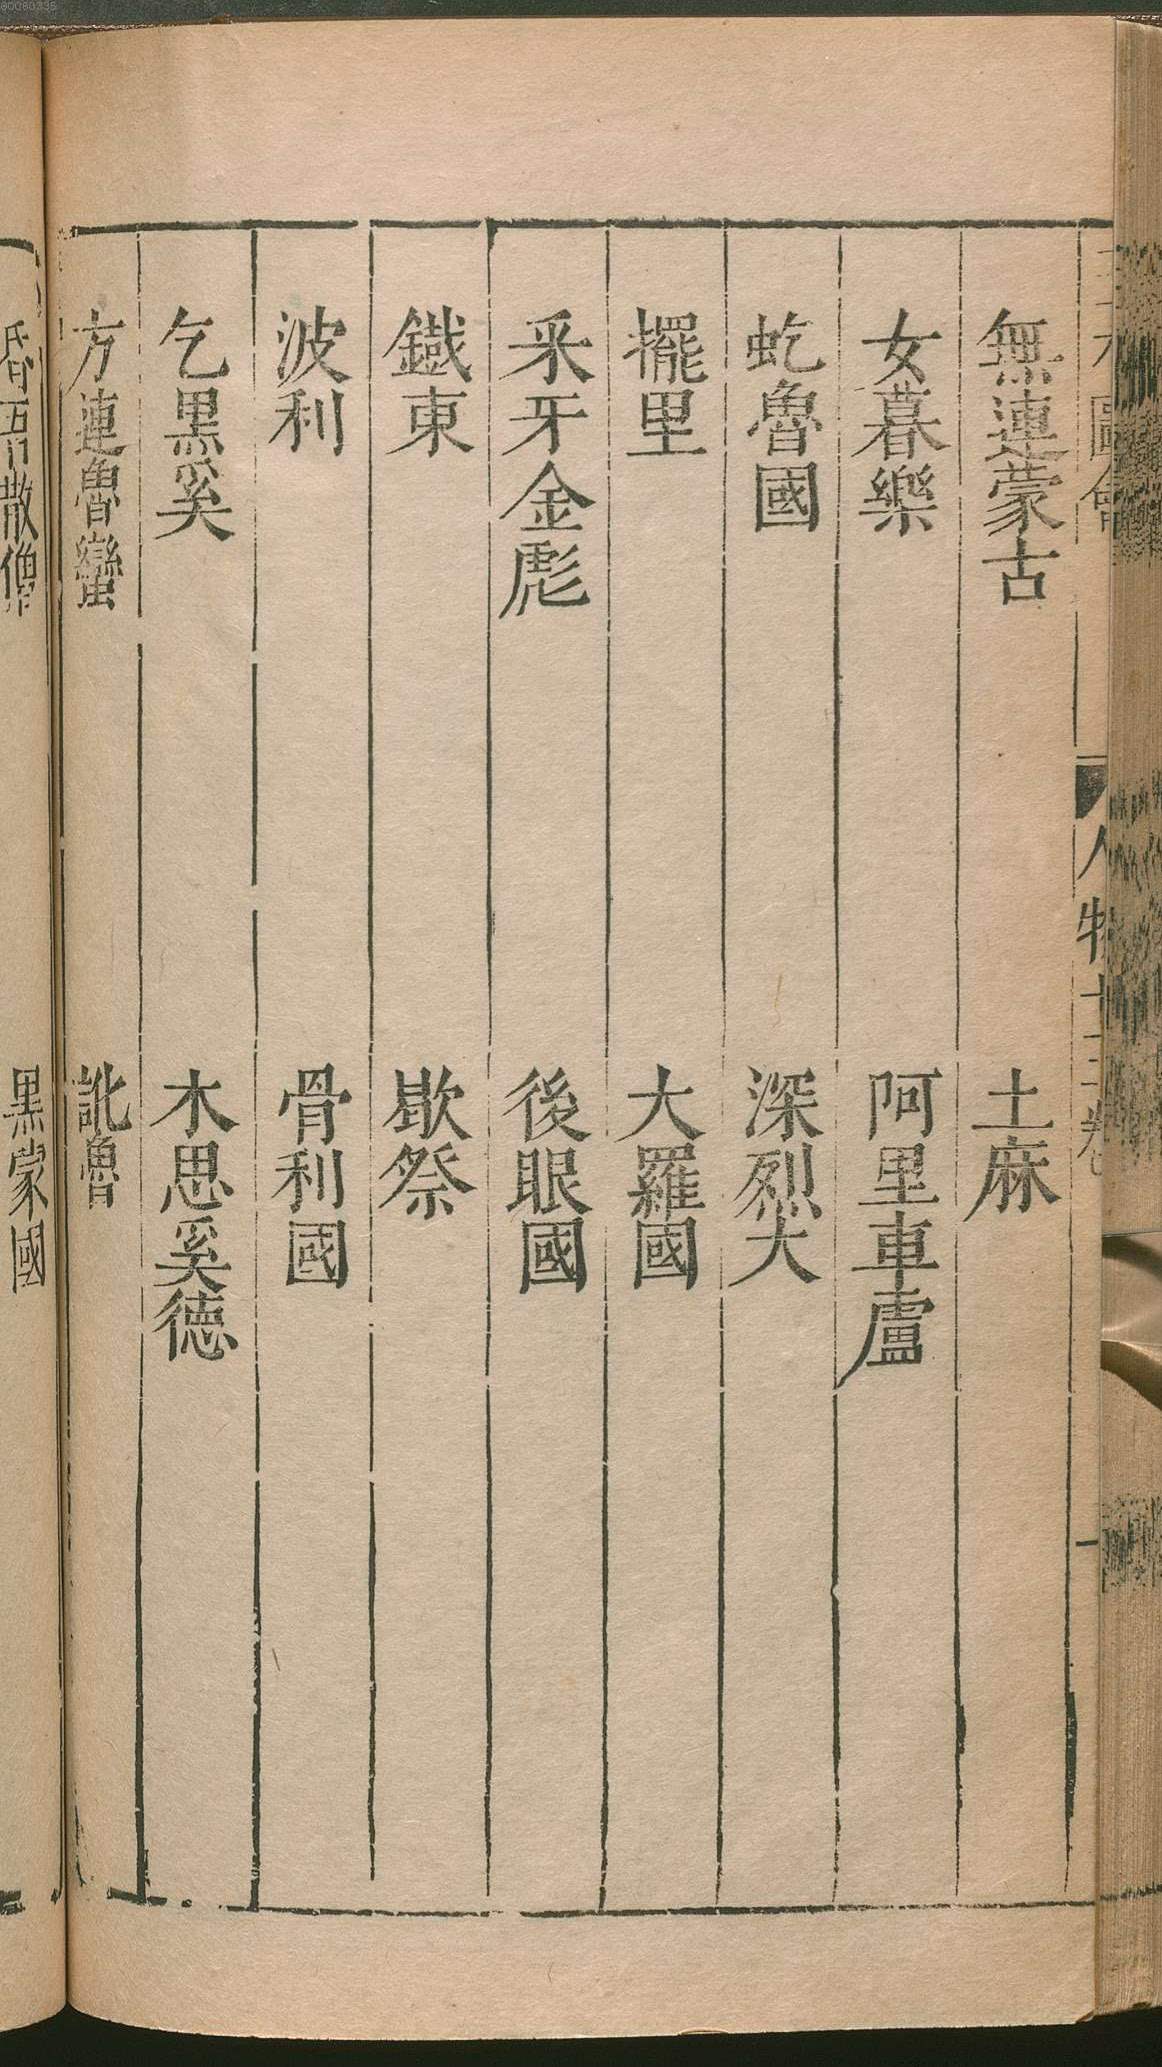 無連蒙古　土麻
女暮樂　阿里車盧
虼魯國　深烈大
擺里　大羅國
采牙金彪　後眼國
鐵東　歇祭
波利　骨利國
乞黑奚　木思奚德
方連魯蠻　訛魯
昏吾散僧　黑蒙國